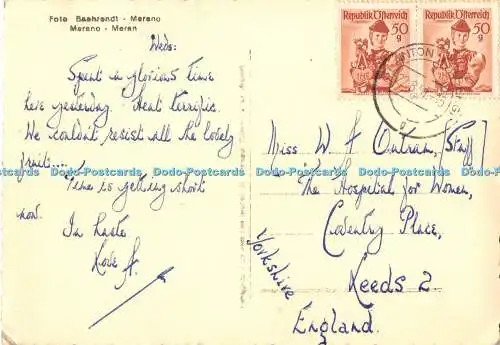 Foto Baehrendt - Merano
Merano - Meran
Weds:
Spent a glorious time
here yesterday. Heat terrific.
We couldnt resist all the lovely
fruit....
Time is getting short
now.
In haste
Love A.
Republik Österreich
50
g
Republik Österreich
50
g
ANTON
Miss W A Outram [Staff]
The Hospital for Women,
Coventry Place,
Leeds 2
Yorkshire
England.
Dodo-Postcards Dodo-Postcards Dodo-Postcards Dodo-Postcards